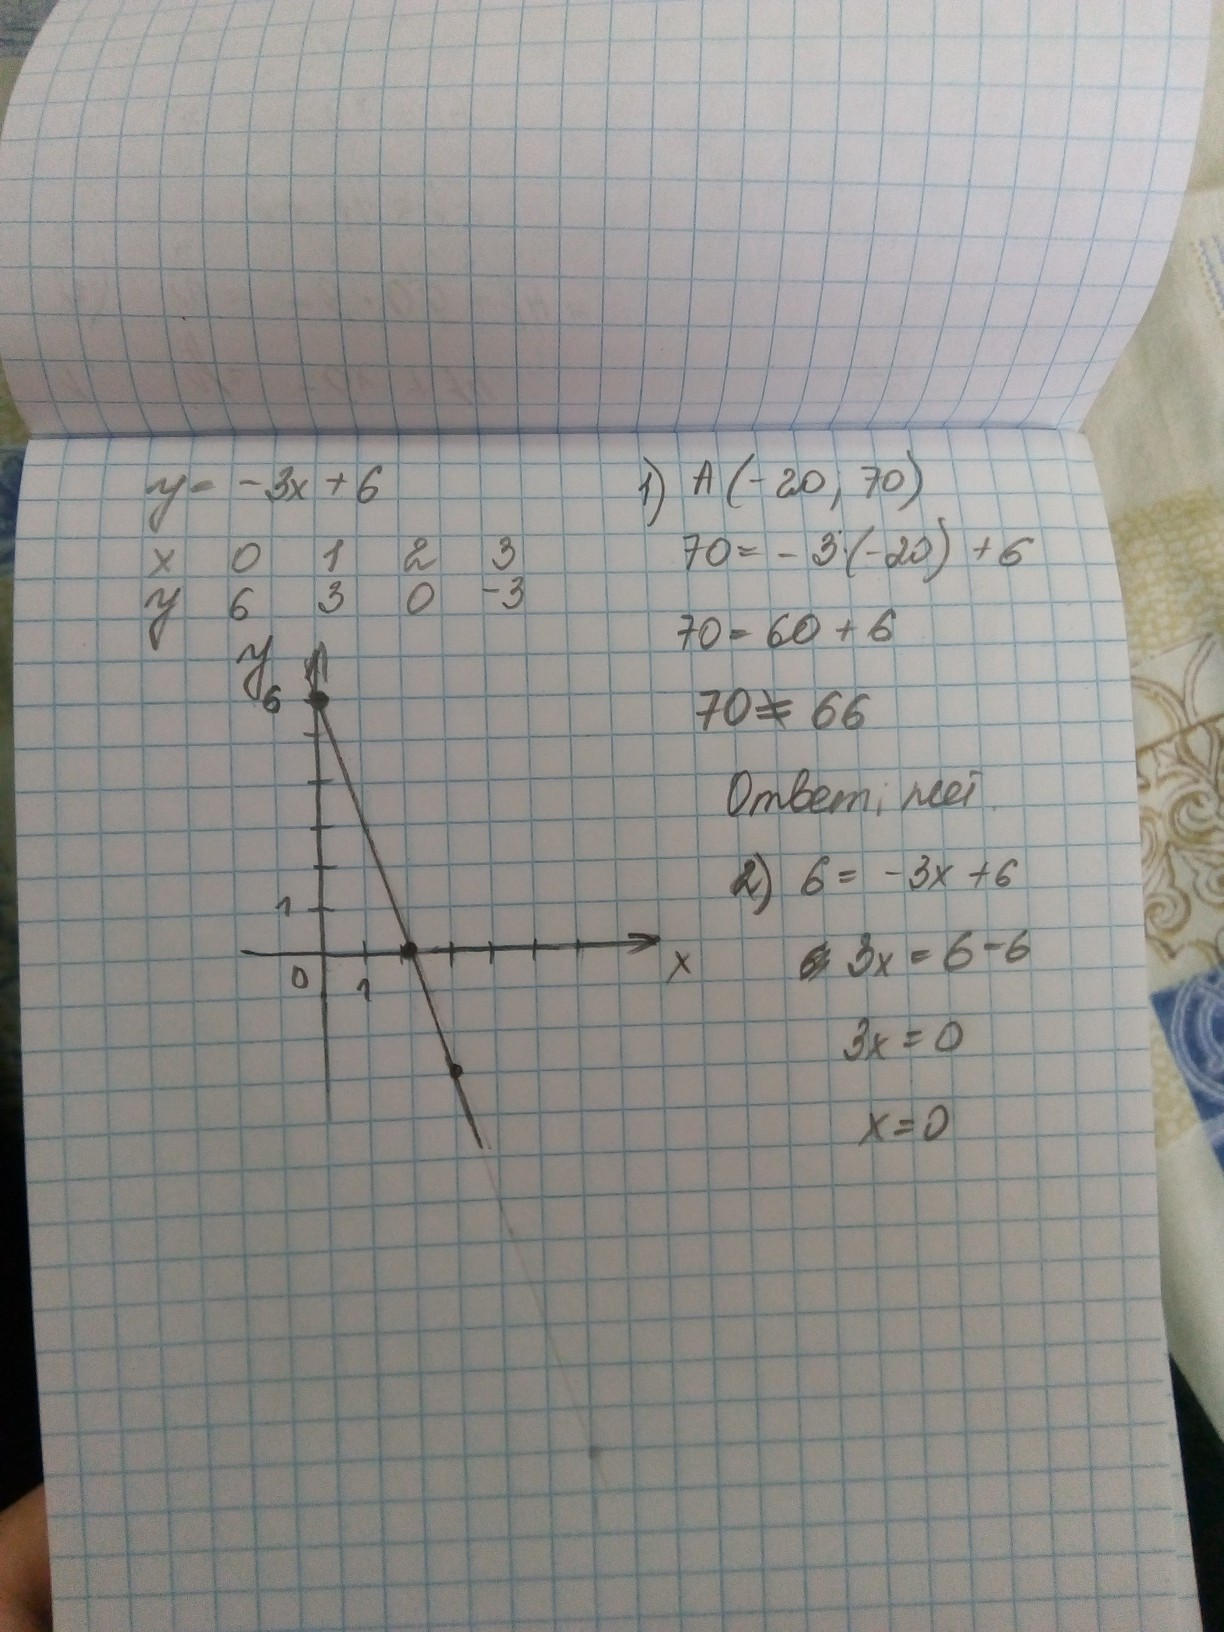 y = -3x + 6
x 0 1 2 3
y 6 3 0 -3
y
6
1
0 1
x
1) A (-20, 70)
70 = -3·(-20) + 6
70 = 60 + 6
70 ≠ 66
Ответ: нет.
2) 6 = -3x + 6
3x = 6 - 6
3x = 0
x = 0